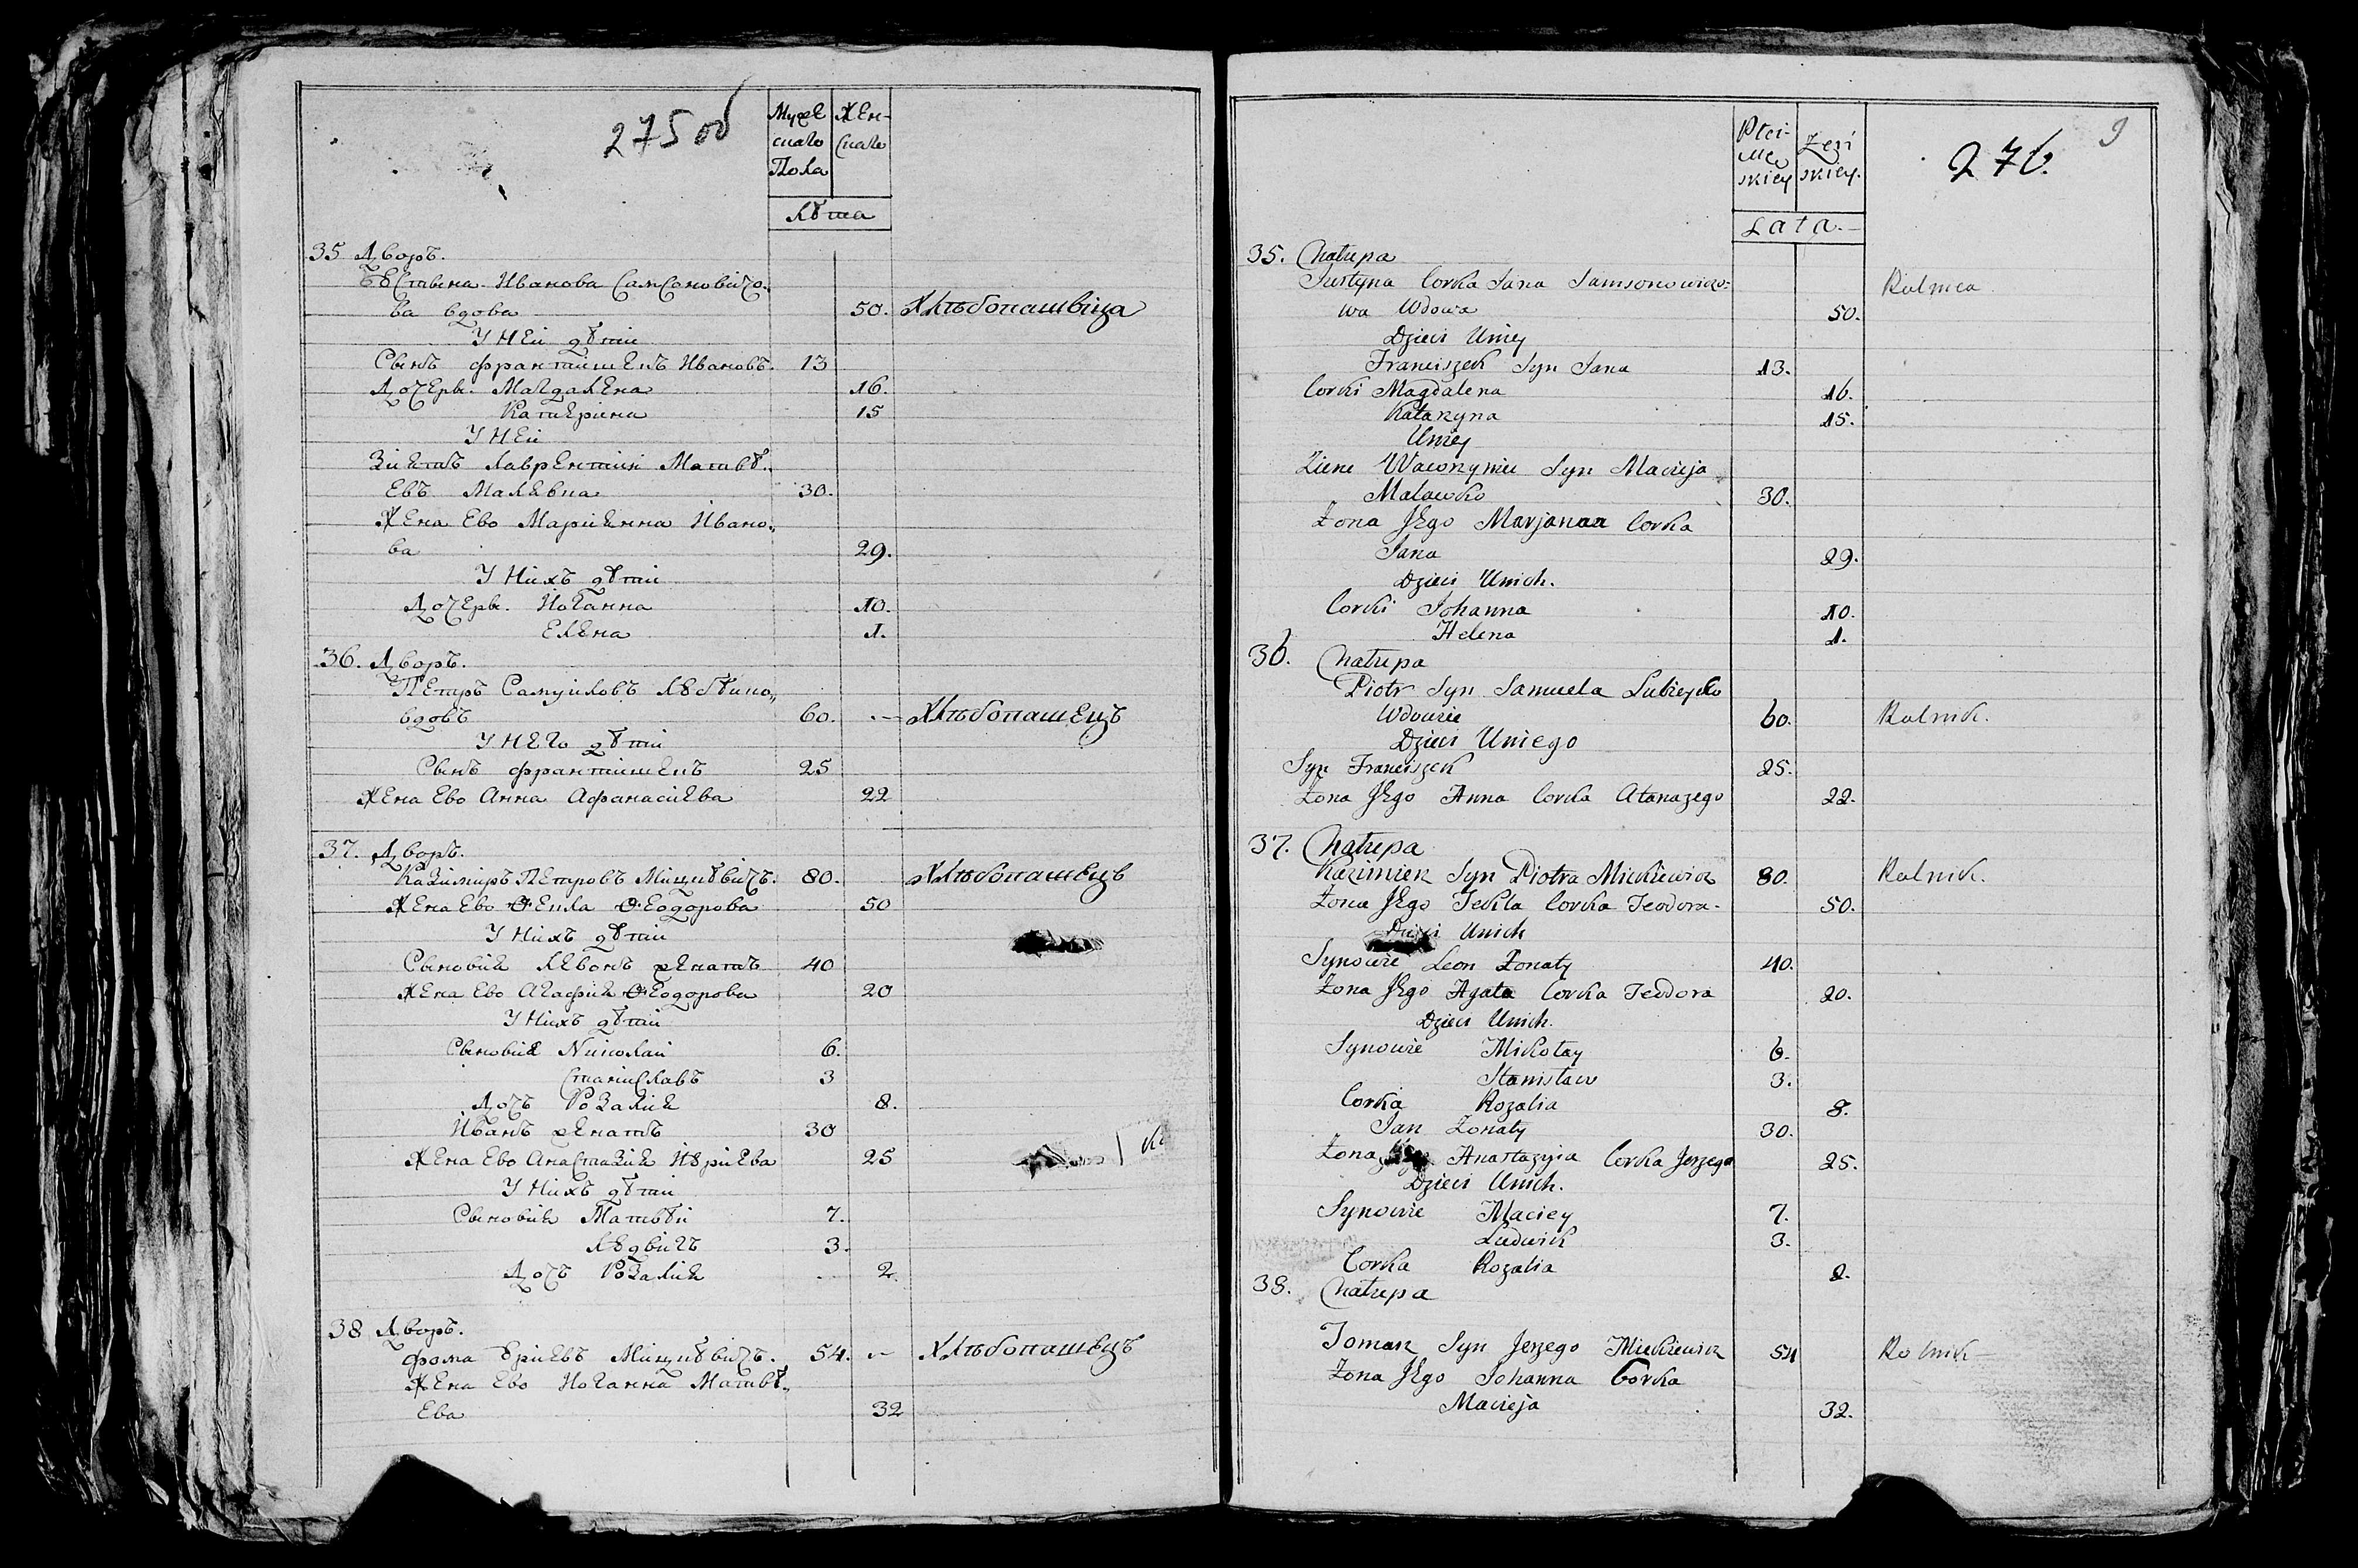 275 об
Мужес Жен-
скаго скаго
Пола
Лѣта
35 Дворъ.
Ꙋстына Иванова Самсоновичо-
ва вдова 50. Хлѣбопашвіца
У ней дѣти
Сынъ францишекъ Ивановъ. 13
Дочеры. Магдалена 16.
Катерина 15
У ней
Зиять Лаврентий Матвѣ„
евъ Малевка 30.
Жена Ево Марианна Ивано„
ва 29.
У нихъ дѣти
Дочеры. Иоганна 10.
Елена 1.
36. Дворъ.
Петръ Самуиловъ Лꙋбѣико„
вдовъ 60. — Хлѣбопашецъ
У него дѣти
Сынъ францишекъ 25
Жена Ево Анна Афанасиева 22
37. Дворъ.
Казимиръ Петровъ Мицкѣвичъ. 80. Хлѣбопашецъ
Жена Ево Ѳекла Ѳеодорова 50
У нихъ дѣти
Сыновия Левонъ женатъ 40
Жена Ево Агафия Ѳеодорова 20
У нихъ дѣти
Сыновия Николай 6.
Станиславъ 3
Дочъ Розалия 8.
Иванъ женатъ 30
Жена Ево Анастазия Ꙋриева 25
У нихъ дѣти
Сыновия Матвѣй 7.
Лꙋдвигъ 3.
Дочъ Розалия 2.
38 Дворъ.
фома Ꙋриевъ Мицкѣвичъ. 54. — Хлѣбопашецъ
Жена Ево Иоганна Матвѣ„
Ева 32
9
276.
Płci- Żeń
męz skiey.
skiey
Lata.—
35. Chałupa
Justyna Corka Jana Samsonowiczo= Rolnica
wa Wdowa 50.
Dzieci Uniey
Franciszek Syn Jana 13.
Corki Magdalena 16.
Katarzyna 15.
Uniey
Zienc Wawrzyniec Syn Macieja
Malewko 30.
Żona Jego Marjanna Corka
Jana 29.
Dzieci Unich.
Corki Johanna 10.
Helena 1.
36. Chałupa
Piotr Syn Samuela Lubieyko
Wdowiec 60. Rolnik.
Dzieci Uniego
Syn Franciszek 25.
Żona Jego Anna Corka Atanazego 22.
37. Chałupa
Kazimierz Syn Piotra Mickiewicz 80. Rolnik.
Żona Jego Tekla Corka Teodora. 50.
Dzieci Unich
Synowie Leon Żonaty 40.
Żona Jego Agata Corka Teodora 20.
Dzieci Unich.
Synowie Mikołay 6.
Stanisław 3.
Corka Rozalia 8.
Jan Żonaty 30.
Żona Jego Anastazyia Corka Jerzego 25.
Dzieci Unich.
Synowie Maciey 7.
Ludwik 3.
Corka Rozalia 2.
38. Chałupa
Tomasz Syn Jerzego Mickiewicz 54 Rolnik
Żona Jego Johanna Corka
Macieja 32.